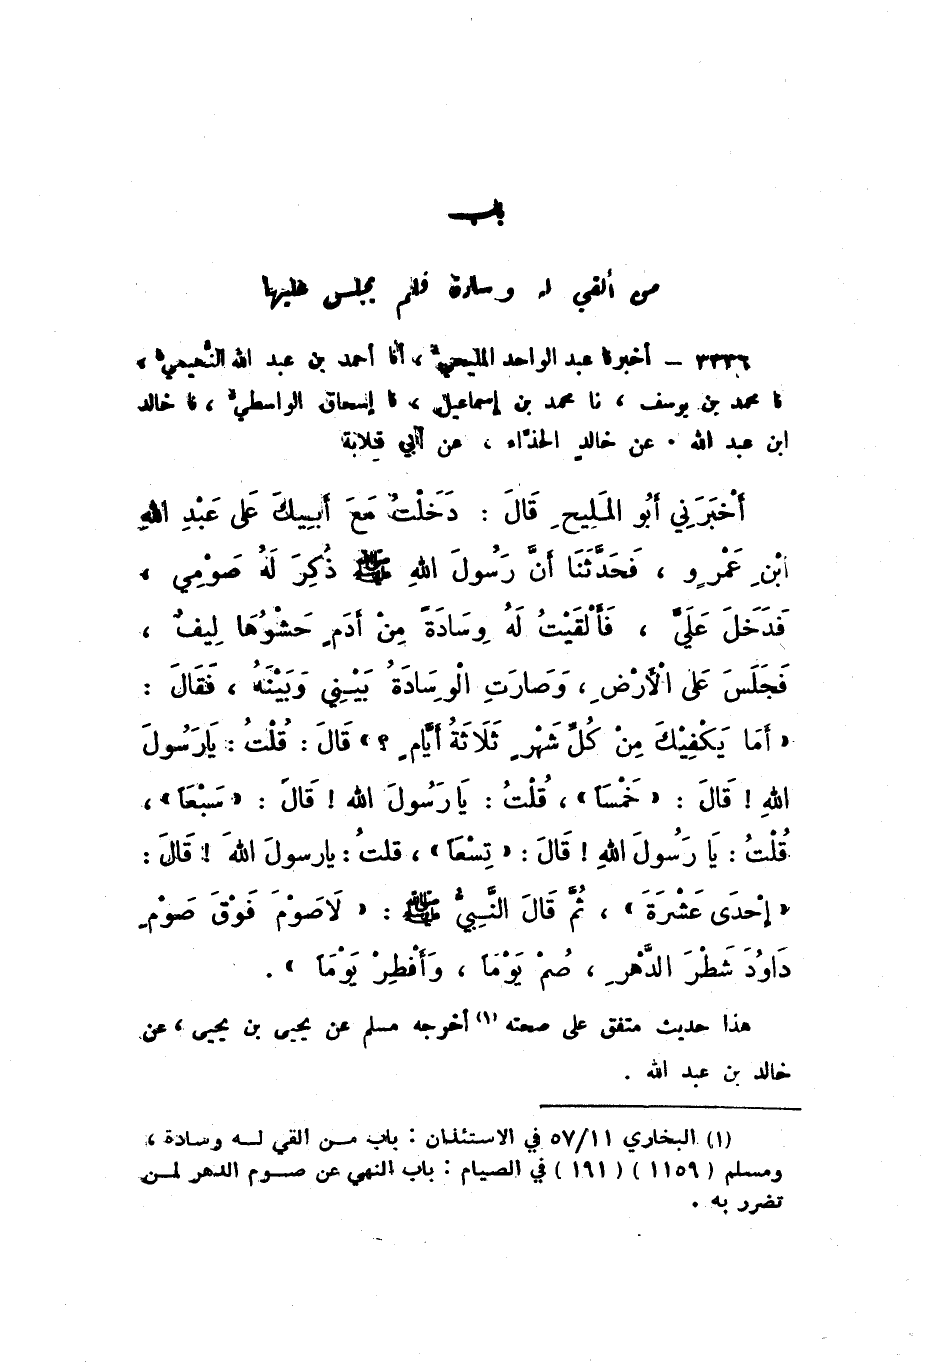 باب
من ألقي له وسادة فلم يجلس عليها
٣٣٣٦ – أخبرنا عبد الواحد المليحيُّ ، أنا أحمد بن عبد الله النُّعيميُّ ،
نا محمد بن يوسف ، نا محمد بن إسماعيل ، نا إسحاق الواسطيُّ ، نا خالد
ابن عبد الله ٠ عن خالدٍ الحذَّاء ، عن أبي قِلابة
أَخْبَرَنِي أَبُو المَلِيحِ قَالَ : دَخَلْتُ مَعَ أَبِيكَ عَلَى عَبْدِ اللهِ
ابْنِ عَمْرٍو ، فَحَدَّثَنَا أَنَّ رَسُولَ اللهِ ﷺ ذُكِرَ لَهُ صَوْمِي ،
فَدَخَلَ عَلَيَّ ، فَأَلْقَيْتُ لَهُ وِسَادَةً مِنْ أَدَمٍ حَشْوُهَا لِيفٌ ،
فَجَلَسَ عَلَى الْأَرْضِ ، وَصَارَتِ الْوِسَادَةُ بَيْنِي وَبَيْنَهُ ، فَقَالَ :
« أَمَا يَكْفِيْكَ مِنْ كُلِّ شَهْرٍ ثَلَاثَةُ أَيَّامٍ ؟ » قَالَ : قُلْتُ : يَارَسُولَ
اللهِ ! قَالَ : « خَمْسَاً » ، قُلْتُ : يَا رَسُولَ الله ! قَالَ : « سَبْعَاً » ،
قُلْتُ : يَا رَسُولَ اللهِ ! قَالَ : « تِسْعَاً » ، قلتُ : يارسولَ اللهَ ! قَالَ :
« إِحْدَى عَشْرَةَ » ، ثُمَّ قَالَ النَّبِيُّ ﷺ : « لَاصَوْمَ فَوْقَ صَوْمِ
دَاوُدَ شَطْرَ الدَّهْرِ ، صُمْ يَوْمَاً ، وَأَفْطِرْ يَوْمَاً » .
هذا حديث متفق على صحته (١) أخرجه مسلم عن يحيى بن يحيى ، عن
خالد بن عبد الله .
(١) البخاري ٥٧/١١ في الاستئذان : باب من القي له وسادة ،
ومسلم ( ١١٥٩ ) ( ١٩١ ) في الصيام : باب النهي عن صوم الدهر لمن
تضرر به .